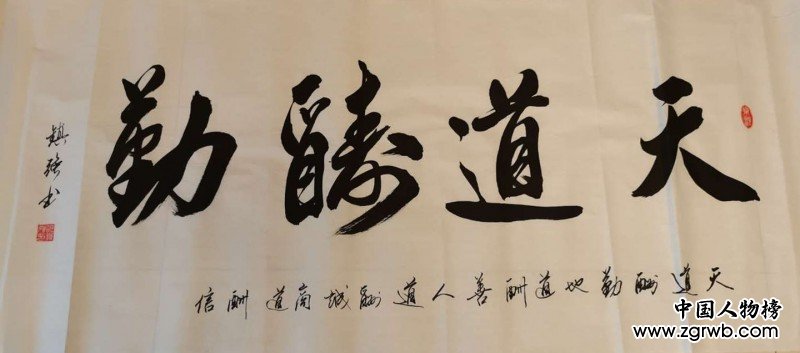 天道醻勤
天道酬勤地道酬善人道酬诚商道酬信
镇强书
中国人物榜
www.zgrwb.com